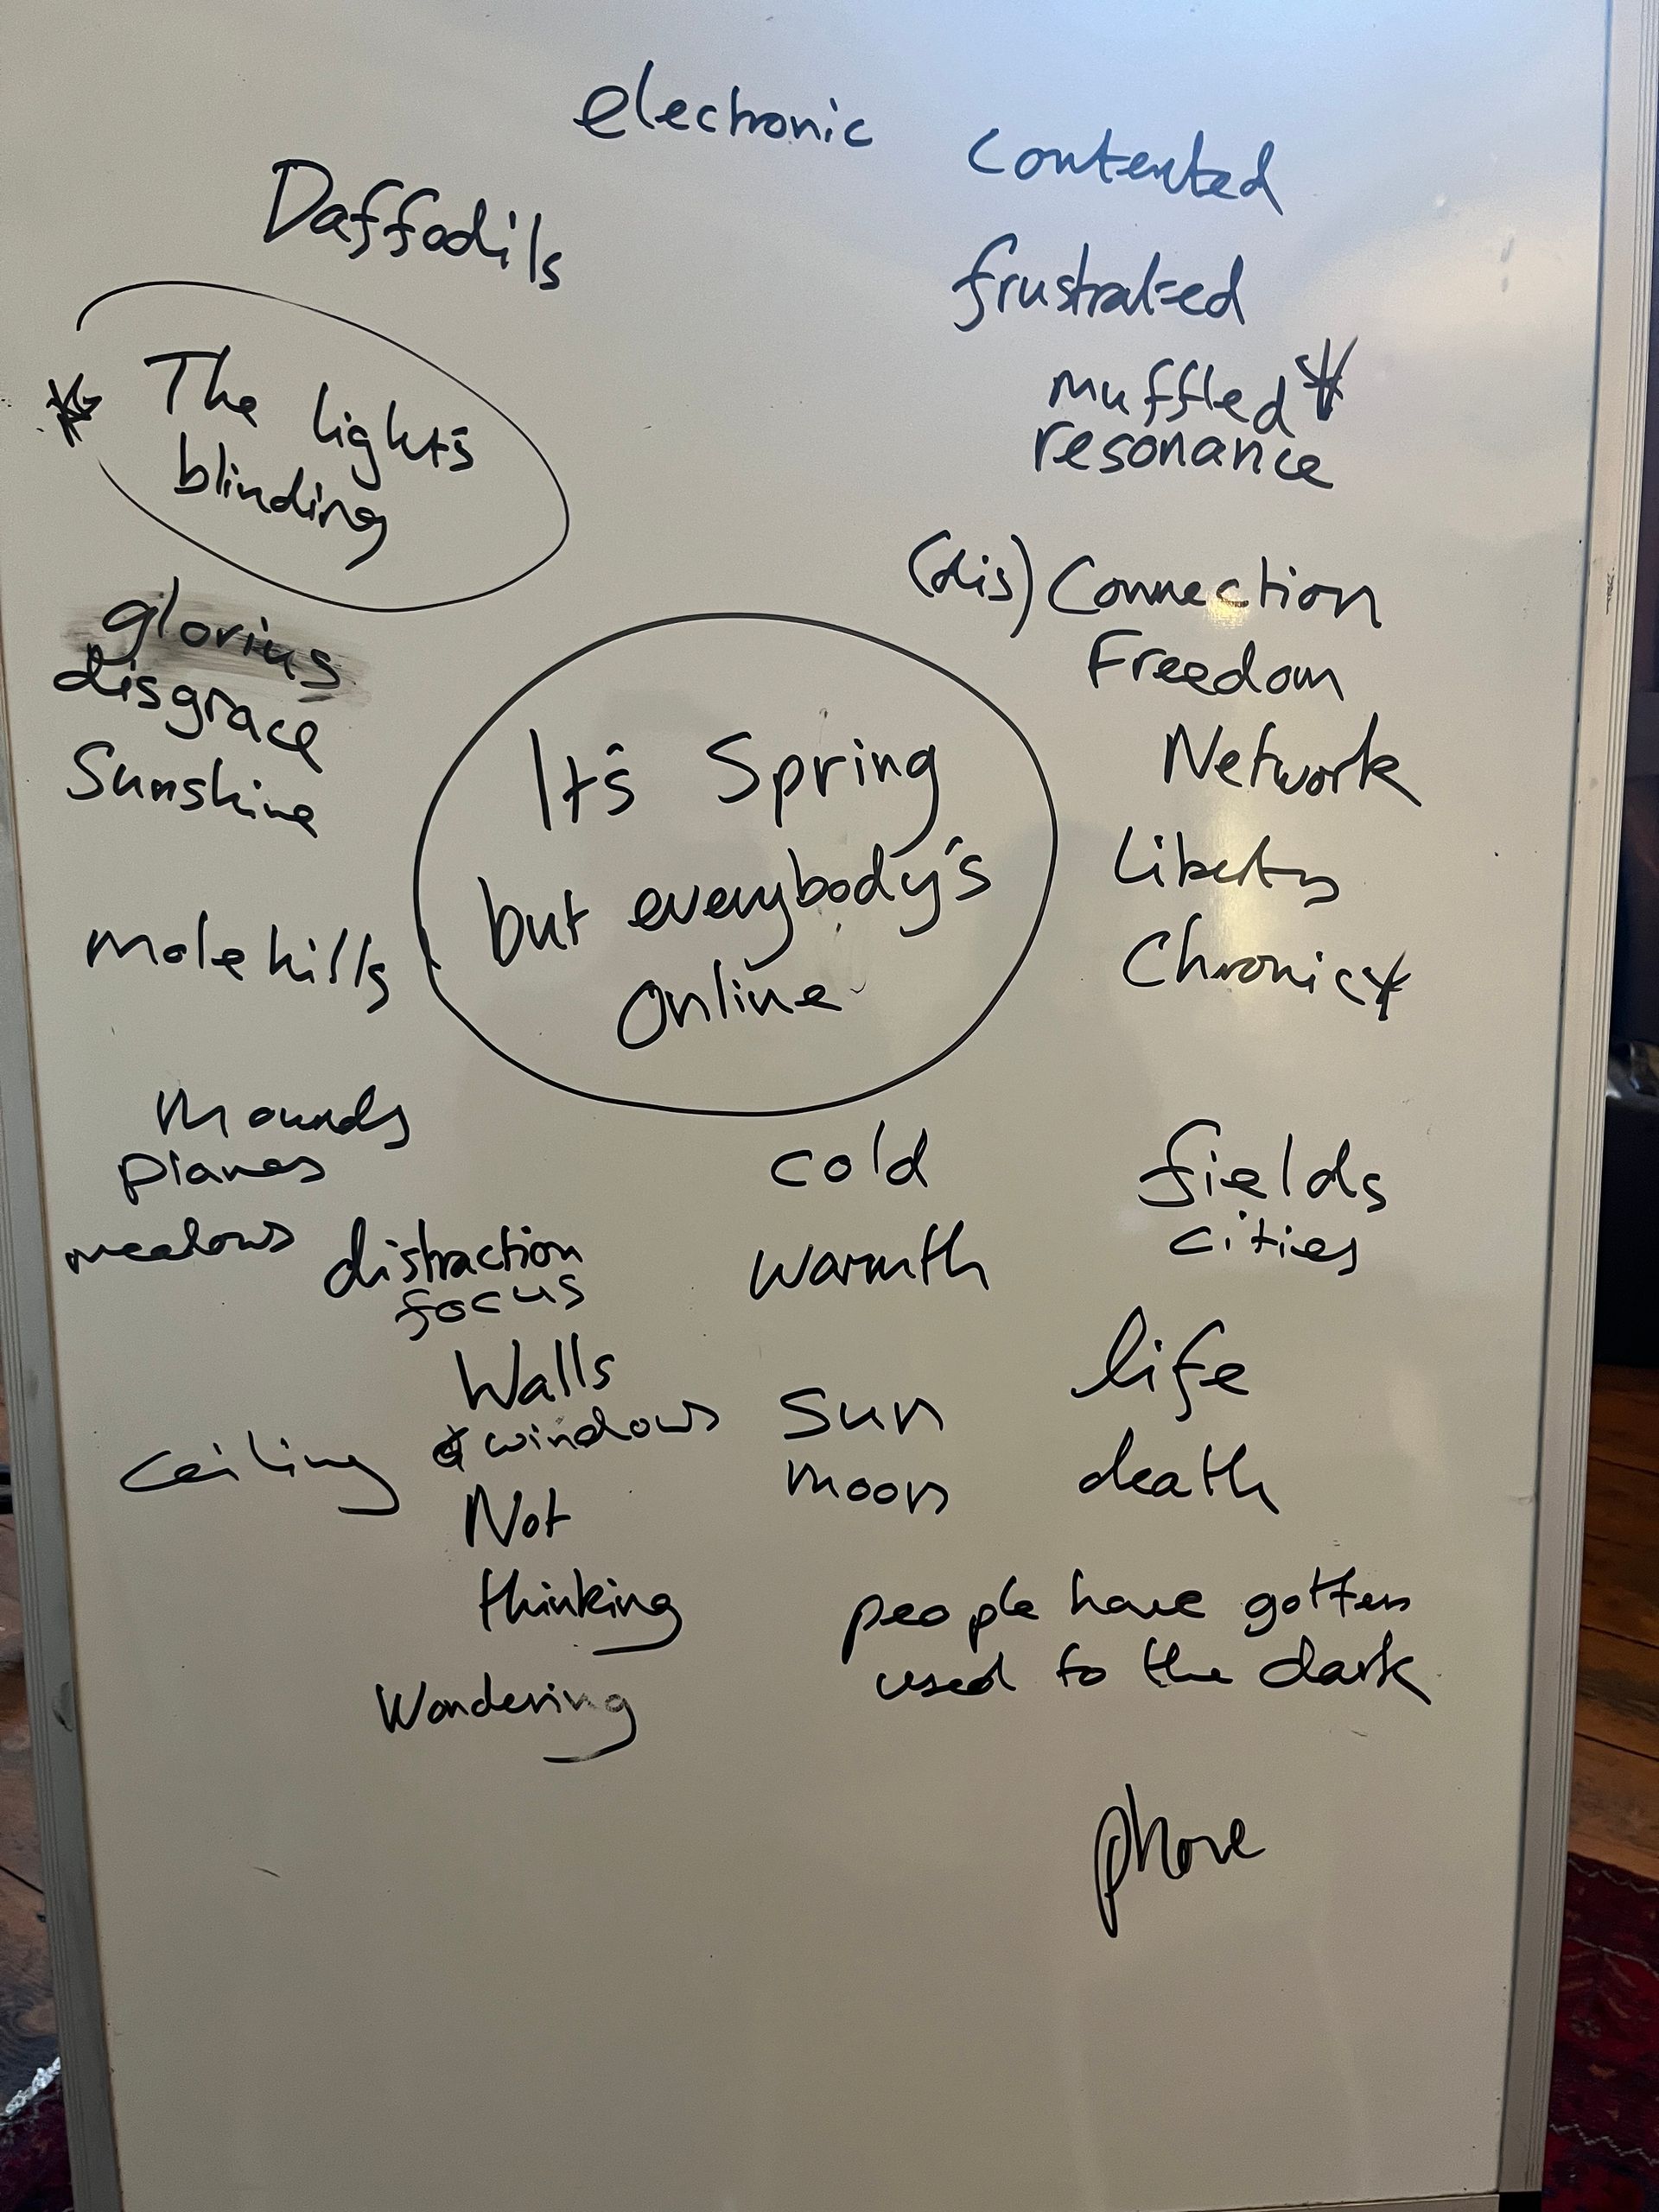 electronic
Contented
Daffodils
frustrated
The light's
blinding
muffled
resonance
(dis) Connection
glorius
disgrace
Sunshine
Freedom
Network
It's Spring
but everybody's
Online
Liberty
Chronic
molehills
Mounds
planes
meadows
cold
warmth
fields
cities
distraction
focus
Walls
& windows
ceiling
Not
thinking
Wondering
Sun
moon
life
death
people have gotten
used to the dark
phone